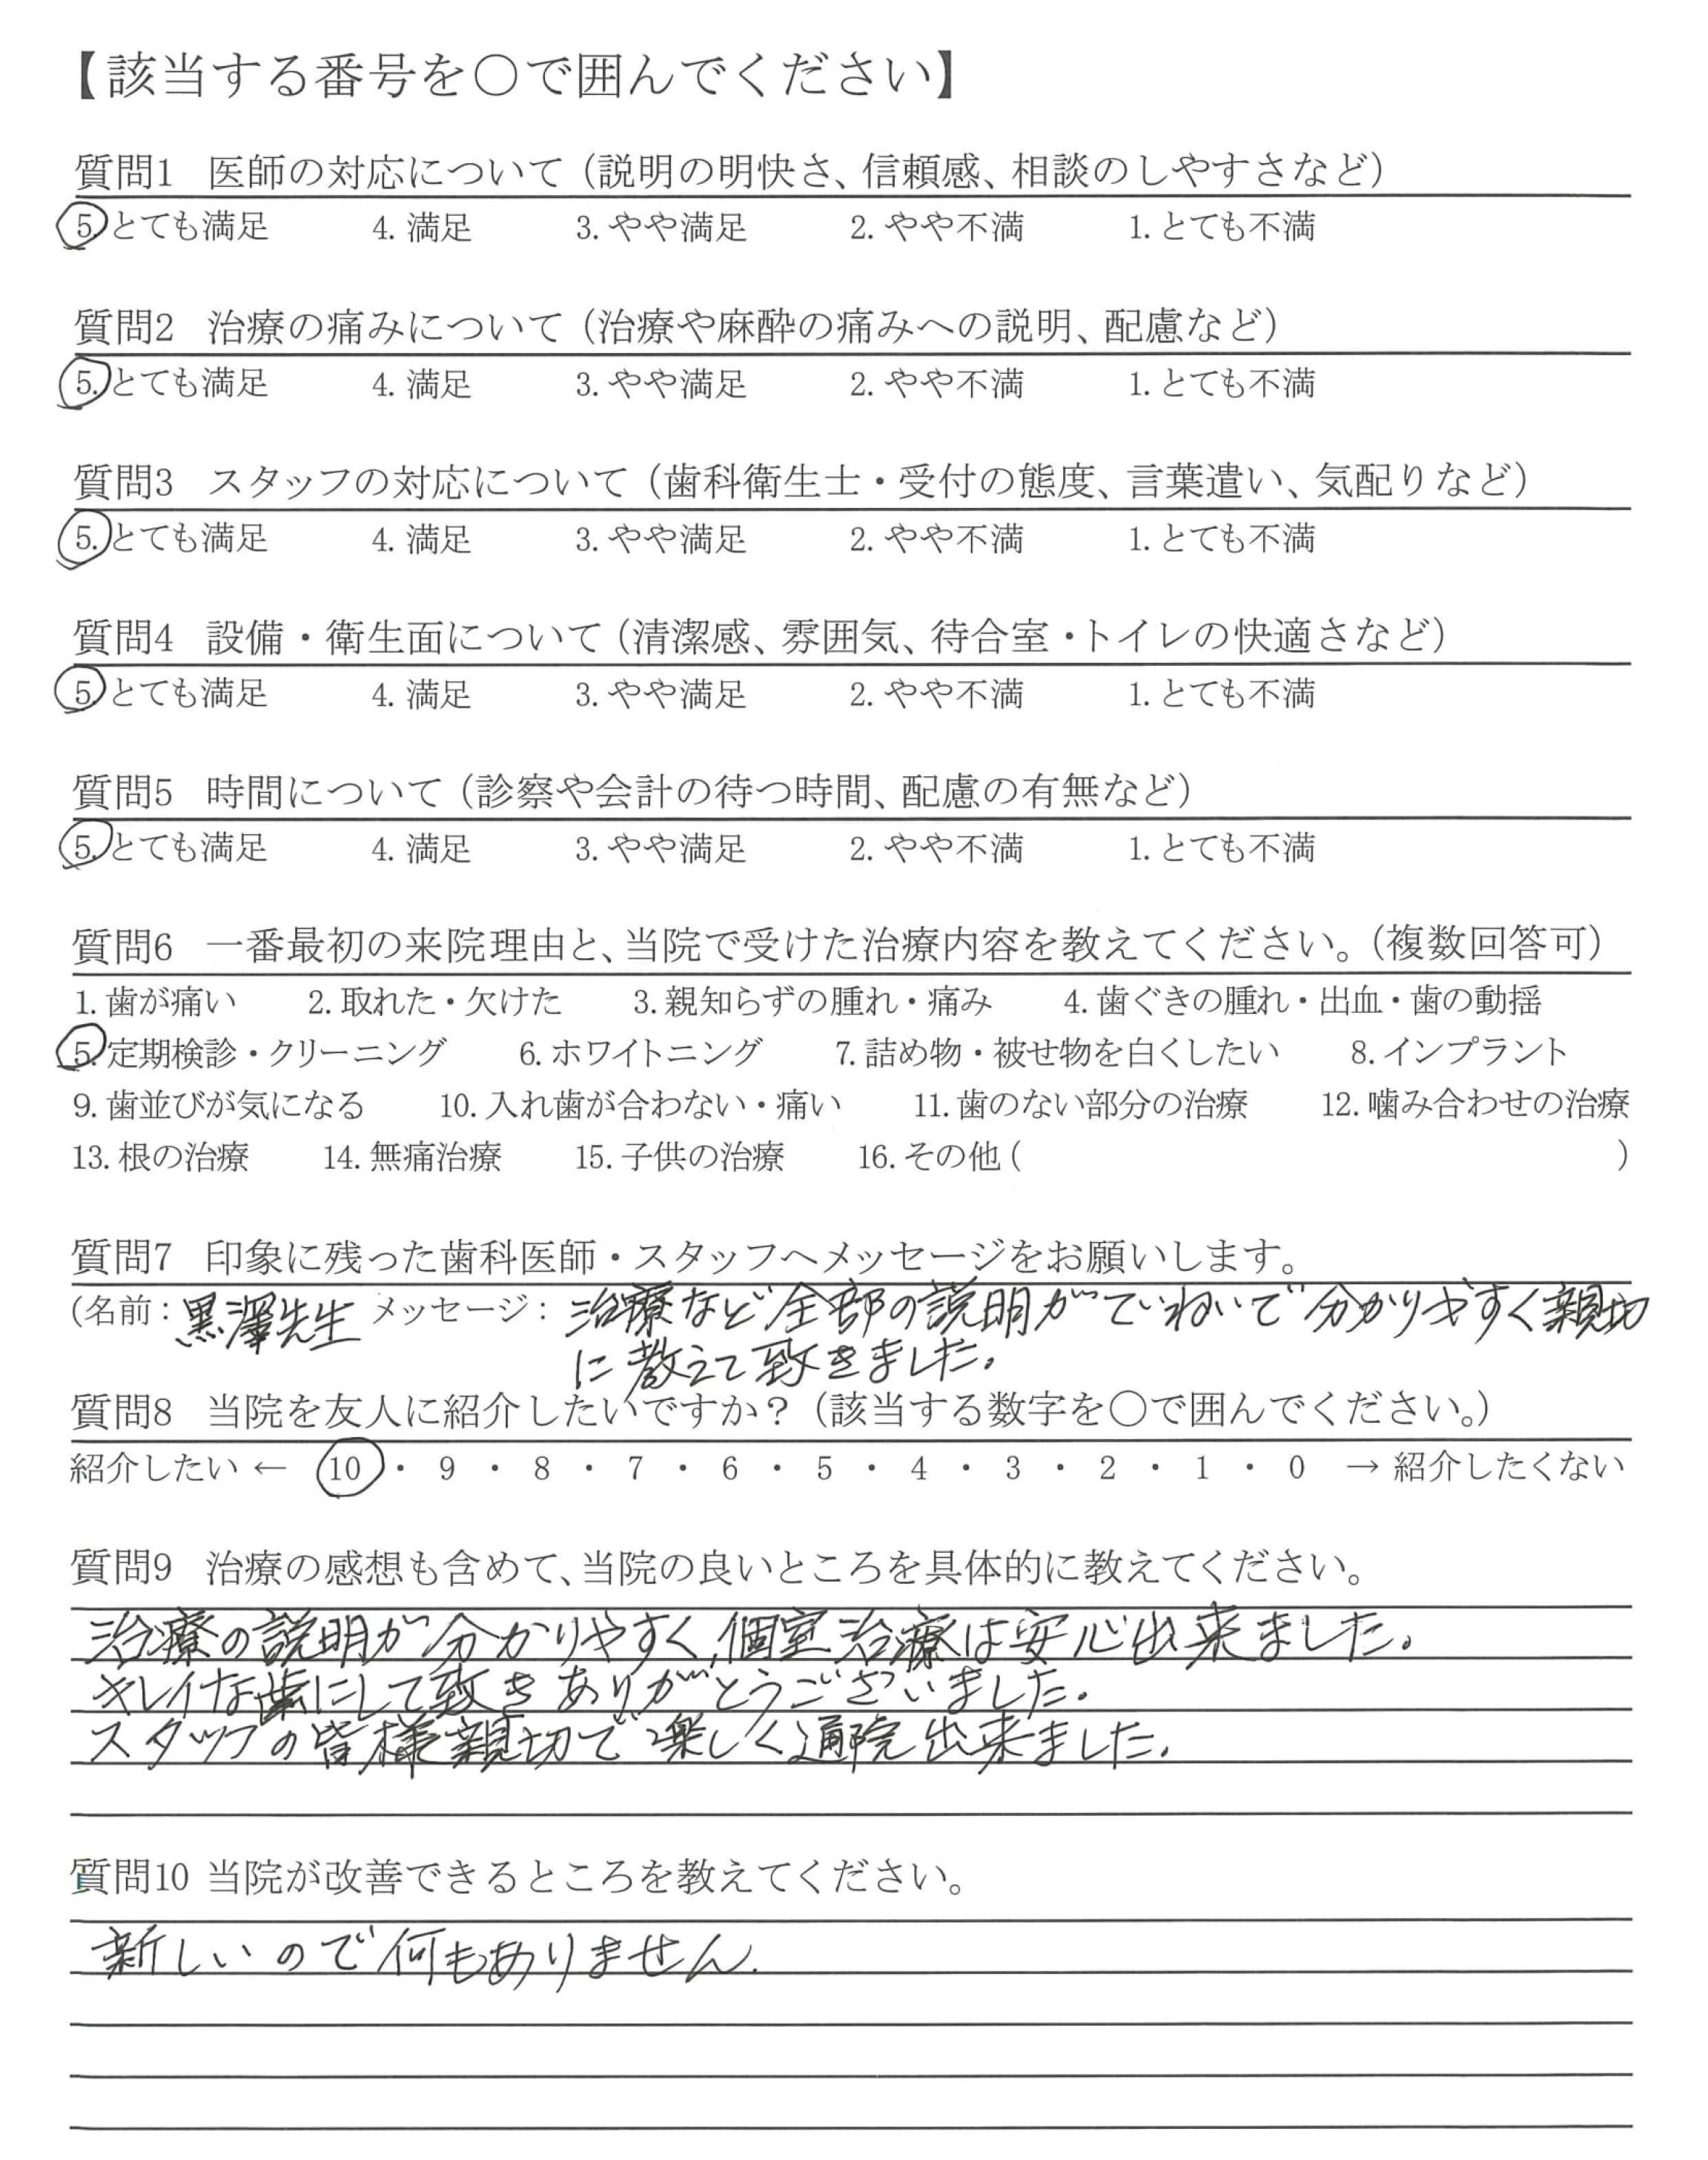 【該当する番号を○で囲んでください】
質問1 医師の対応について（説明の明快さ、信頼感、相談のしやすさなど）
5. とても満足 4. 満足 3. やや満足 2. やや不満 1. とても不満
質問2 治療の痛みについて（治療や麻酔の痛みへの説明、配慮など）
5. とても満足 4. 満足 3. やや満足 2. やや不満 1. とても不満
質問3 スタッフの対応について（歯科衛生士・受付の態度、言葉遣い、気配りなど）
5. とても満足 4. 満足 3. やや満足 2. やや不満 1. とても不満
質問4 設備・衛生面について（清潔感、雰囲気、待合室・トイレの快適さなど）
5. とても満足 4. 満足 3. やや満足 2. やや不満 1. とても不満
質問5 時間について（診察や会計の待つ時間、配慮の有無など）
5. とても満足 4. 満足 3. やや満足 2. やや不満 1. とても不満
質問6 一番最初の来院理由と、当院で受けた治療内容を教えてください。（複数回答可）
1. 歯が痛い 2. 取れた・欠けた 3. 親知らずの腫れ・痛み 4. 歯ぐきの腫れ・出血・歯の動揺
5. 定期検診・クリーニング 6. ホワイトニング 7. 詰め物・被せ物を白くしたい 8. インプラント
9. 歯並びが気になる 10. 入れ歯が合わない・痛い 11. 歯のない部分の治療 12. 噛み合わせの治療
13. 根の治療 14. 無痛治療 15. 子供の治療 16. その他（ ）
質問7 印象に残った歯科医師・スタッフへメッセージをお願いします。
（名前：黒澤先生 メッセージ：治療など全部の説明がていねいで分かりやすく親切
に教えて致きました。
質問8 当院を友人に紹介したいですか？（該当する数字を○で囲んでください。）
紹介したい ← 10 ・ 9 ・ 8 ・ 7 ・ 6 ・ 5 ・ 4 ・ 3 ・ 2 ・ 1 ・ 0 → 紹介したくない
質問9 治療の感想も含めて、当院の良いところを具体的に教えてください。
治療の説明が分かりやすく、個室治療は安心出来ました。
キレイな歯にして致きありがとうございました。
スタッフの皆様親切で楽しく通院出来ました。
質問10 当院が改善できるところを教えてください。
新しいので何もありません。